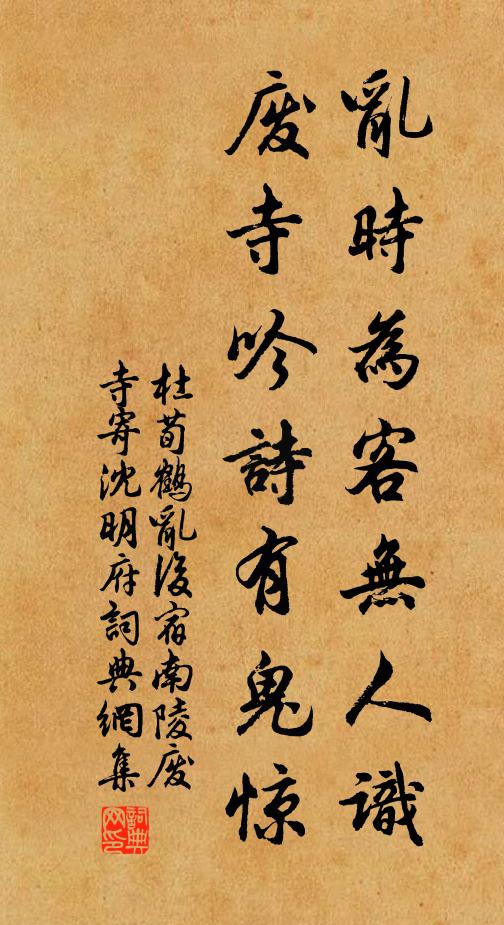 亂時為客無人識
廢寺吟詩有鬼惊
杜荀鶴亂後宿南陵廢
寺寄沈明府詞典網集
詞典
网印